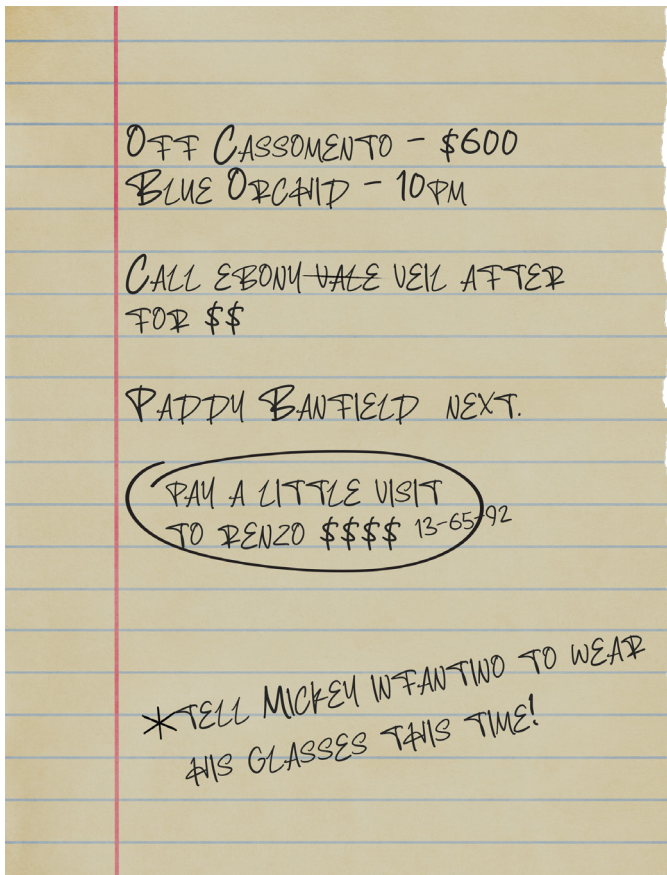 OFF CASSOMENTO - $600
BLUE ORCHID - 10PM
CALL EBONY VALE VEIL AFTER
FOR $$
PADDY BANFIELD NEXT.
PAY A LITTLE VISIT
TO RENZO $$$$ 13-65-92
*TELL MICKEY INFANTINO TO WEAR
HIS GLASSES THIS TIME!